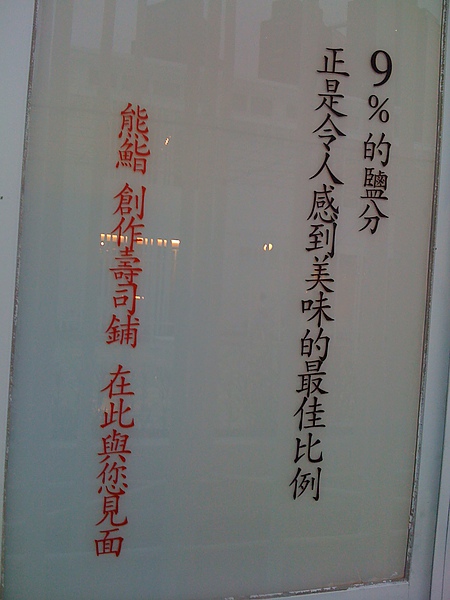 9%的鹽分
正是令人感到美味的最佳比例
熊鮨 創作壽司鋪 在此與您見面